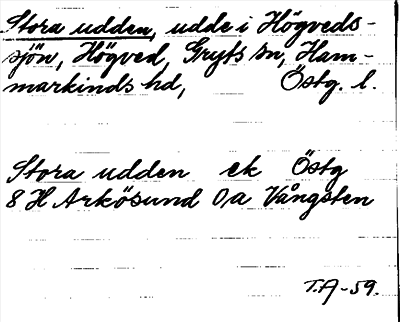 Stora udden, udde i Högveds-
sjön, Högved, Gryts sn, Ham-
markinds hd, Östg. l.
Stora udden ek Östg
8 H Arkösund 0,a Vångsten
T.A-59.